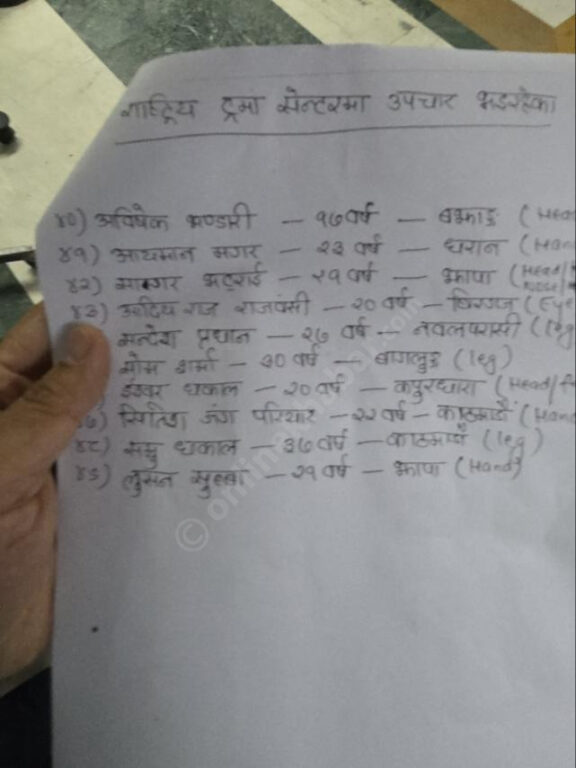 राष्ट्रिय ट्रमा सेन्टरमा उपचार भइरहेका
४०) अभिषेक भण्डारी – १७ वर्ष – बझाङ (Head
४१) आयमान मगर – २३ वर्ष – धरान (Hand
४२) सागर भट्टराई – २१ वर्ष – झापा (Head/
४३) आदित्य राज राजवंसी – २० वर्ष – विरगंज (Eye
सन्देश प्रधान – २७ वर्ष – नवलपरासी (leg
सोम शर्मा – ३० वर्ष – बागलुङ (leg)
ईश्वर ढकाल – २० वर्ष – कपुरधारा (Head/
जंग परियार – २२ वर्ष – काठमाडौं (Hand
४८) ढकाल – ३७ वर्ष – काठमाडौं (leg)
४९) लुसन सुब्बा – २१ वर्ष – झापा (Hand)